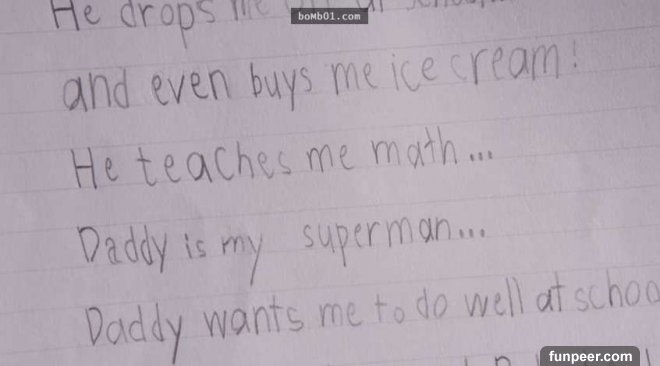 He drops me at school
bomb01.com
and even buys me ice cream!
He teaches me math...
Daddy is my superman...
Daddy wants me to do well at schoo
funpeer.com